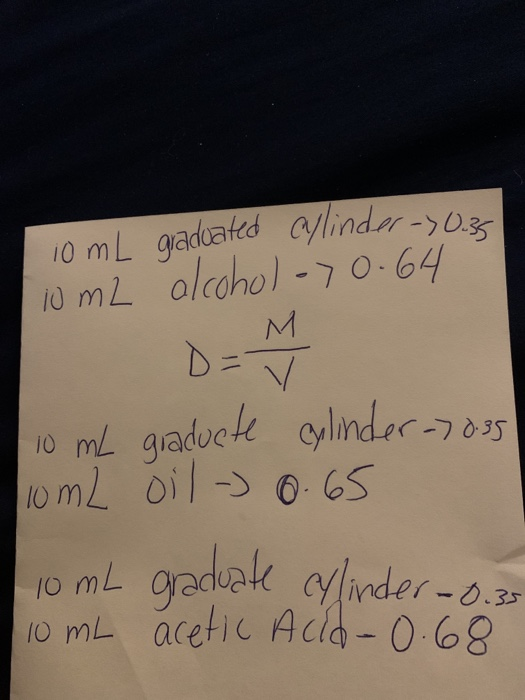 10 mL graduated cylinder -> 0.35
10 mL alcohol -> 0.64
D = M
V
10 mL graducte cylinder -> 0.35
10 mL oil -> 0.65
10 mL graduate cylinder - 0.35
10 mL acetic Acid - 0.68